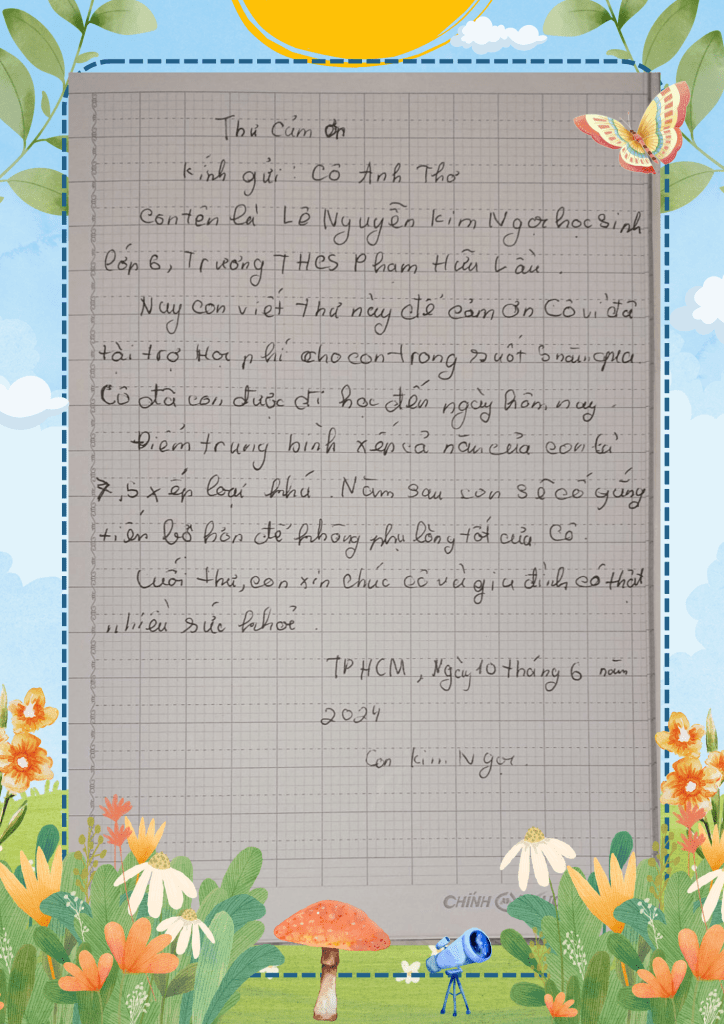 Thư cảm ơn
Kính gửi: Cô Anh Thơ
Con tên là Lê Nguyễn Kim Ngọc học sinh
lớp 6, Trương THCS Phạm Hữu Lầu.
Nay con viết thư này để cảm ơn Cô vì đã
tài trợ học phí cho con trong suốt năm qua.
Cô đã con được đi học đến ngày hôm nay.
Điểm trung bình xếp cả năm của con là
7,5 xếp loại khá. Năm sau con sẽ cố gắng
tiến bộ hơn để không phụ lòng tốt của Cô.
Cuối thư, con xin chúc cô và gia đình có thật
nhiều sức khoẻ.
TPHCM, Ngày 10 tháng 6 năm
2024
Con Kim Ngọc.
CHÍNH